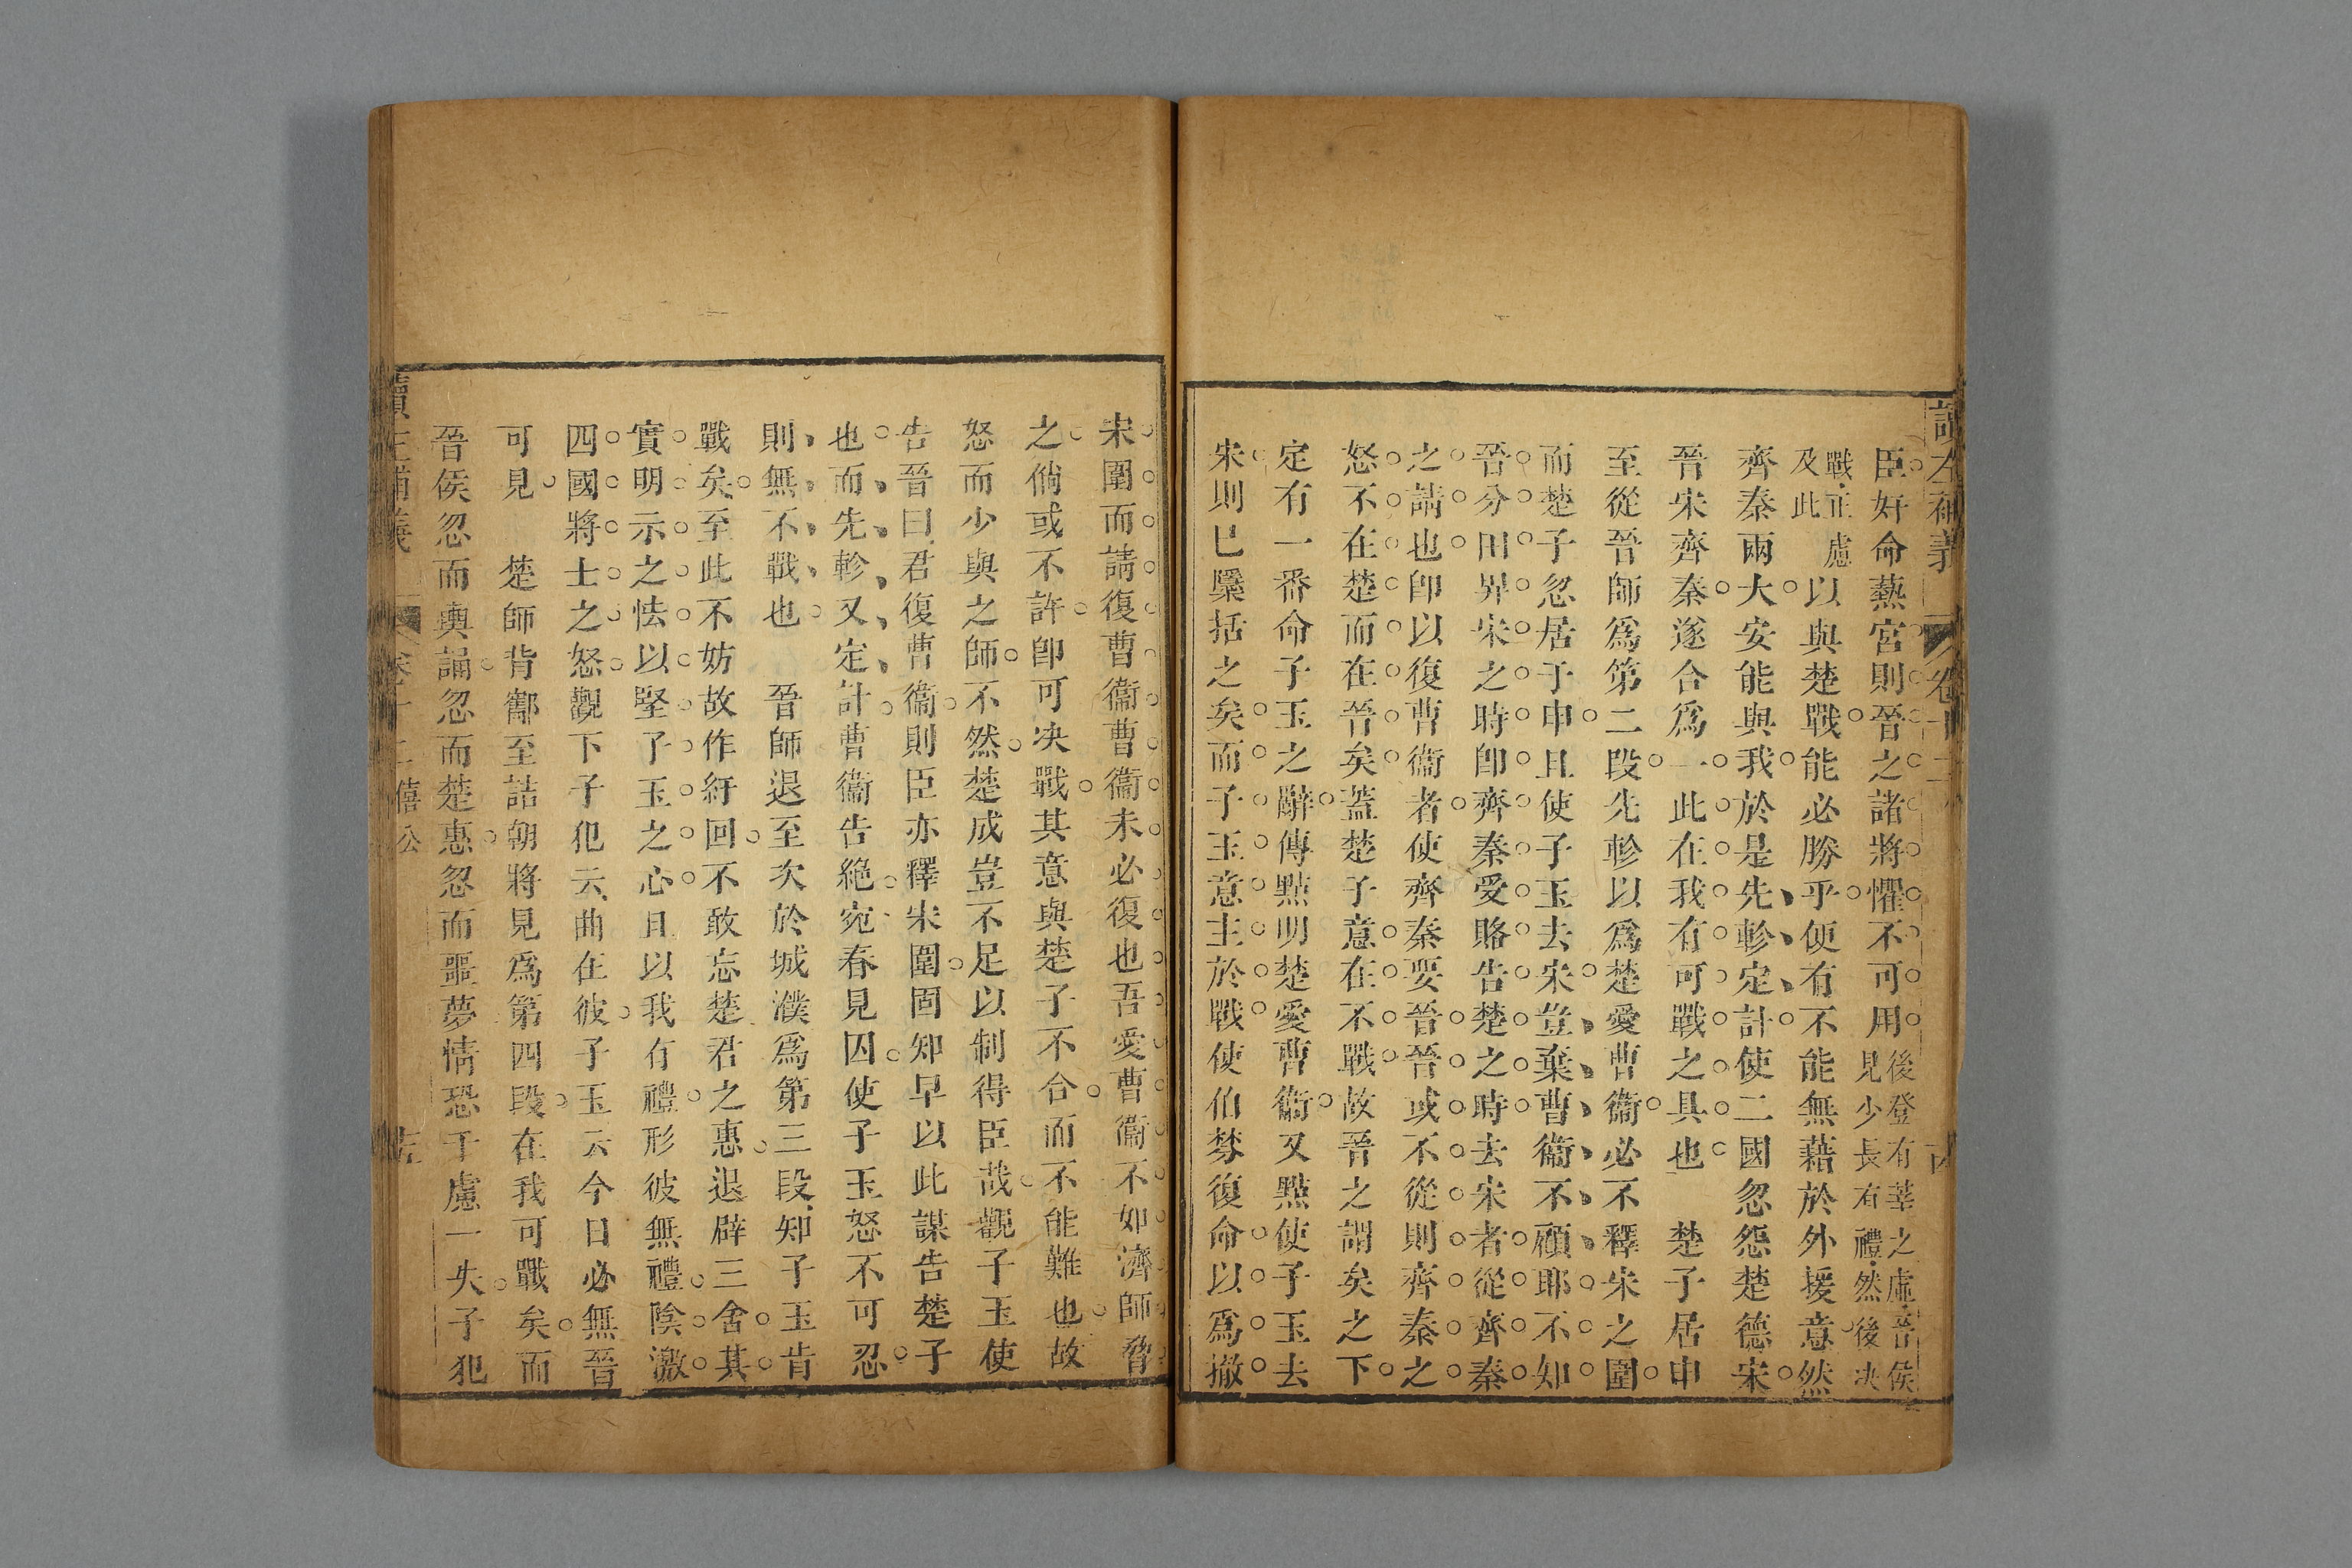 讀左補義 卷十二
臣奸命爇宮則晉之諸將懼不可用後登有莘之虛晉侯見少長有禮然後决
戰正慮及此以與楚戰能必勝乎便有不能無藉於外援意然
齊秦兩大安能與我於是先軫定計使二國忽怨楚德宋
晉宋齊秦遂合為一此在我有可戰之具也 楚子居申
至從晉師爲第二段先軫以爲楚愛曹衞必不釋宋之圍
而楚子忽居于申且使子玉去宋豈棄曹衞不顧耶不知
晉分田畀宋之時卽齊秦愛賂告楚之時去宋者從齊秦
之請也卽以復曹衞者使齊秦要晉晉或不從則齊秦之
怒不在楚而在晉矣蓋楚子意在不戰故晉之謂矣之下
定有一番命子玉之辭傳點明楚愛曹衞又點使子玉去
宋則已檃括之矣而子玉意主於戰使伯棼復命以爲撤
宋圍而請復曹衞曹衞未必復也吾愛曹衞不如濟師脅
之倘或不許卽可决戰其意與楚子不合而不能難也故
怒而少與之師不然楚成豈不足以制得臣哉觀子玉使
告晉曰君復曹衞則臣亦釋宋圍固知早以此謀告楚子
也而先軫又定計曹衞告絶宛春見囚使子玉怒不可忍
則無不戰也 晉師退至次於城濮爲第三段知子玉肯
戰矣至此不妨故作紆回不敢忘楚君之惠退辟三舍其
實明示之怯以堅子玉之心且以我有禮形彼無禮陰激
四國將士之怒觀下子犯云曲在彼子玉云今日必無晉
可見 楚師背酅至詰朝將見爲第四段在我可戰矣而
晉侯忽而輿誦忽而楚惠忽而噩夢情恐千慮一失子犯
讀左補義 卷十二僖公